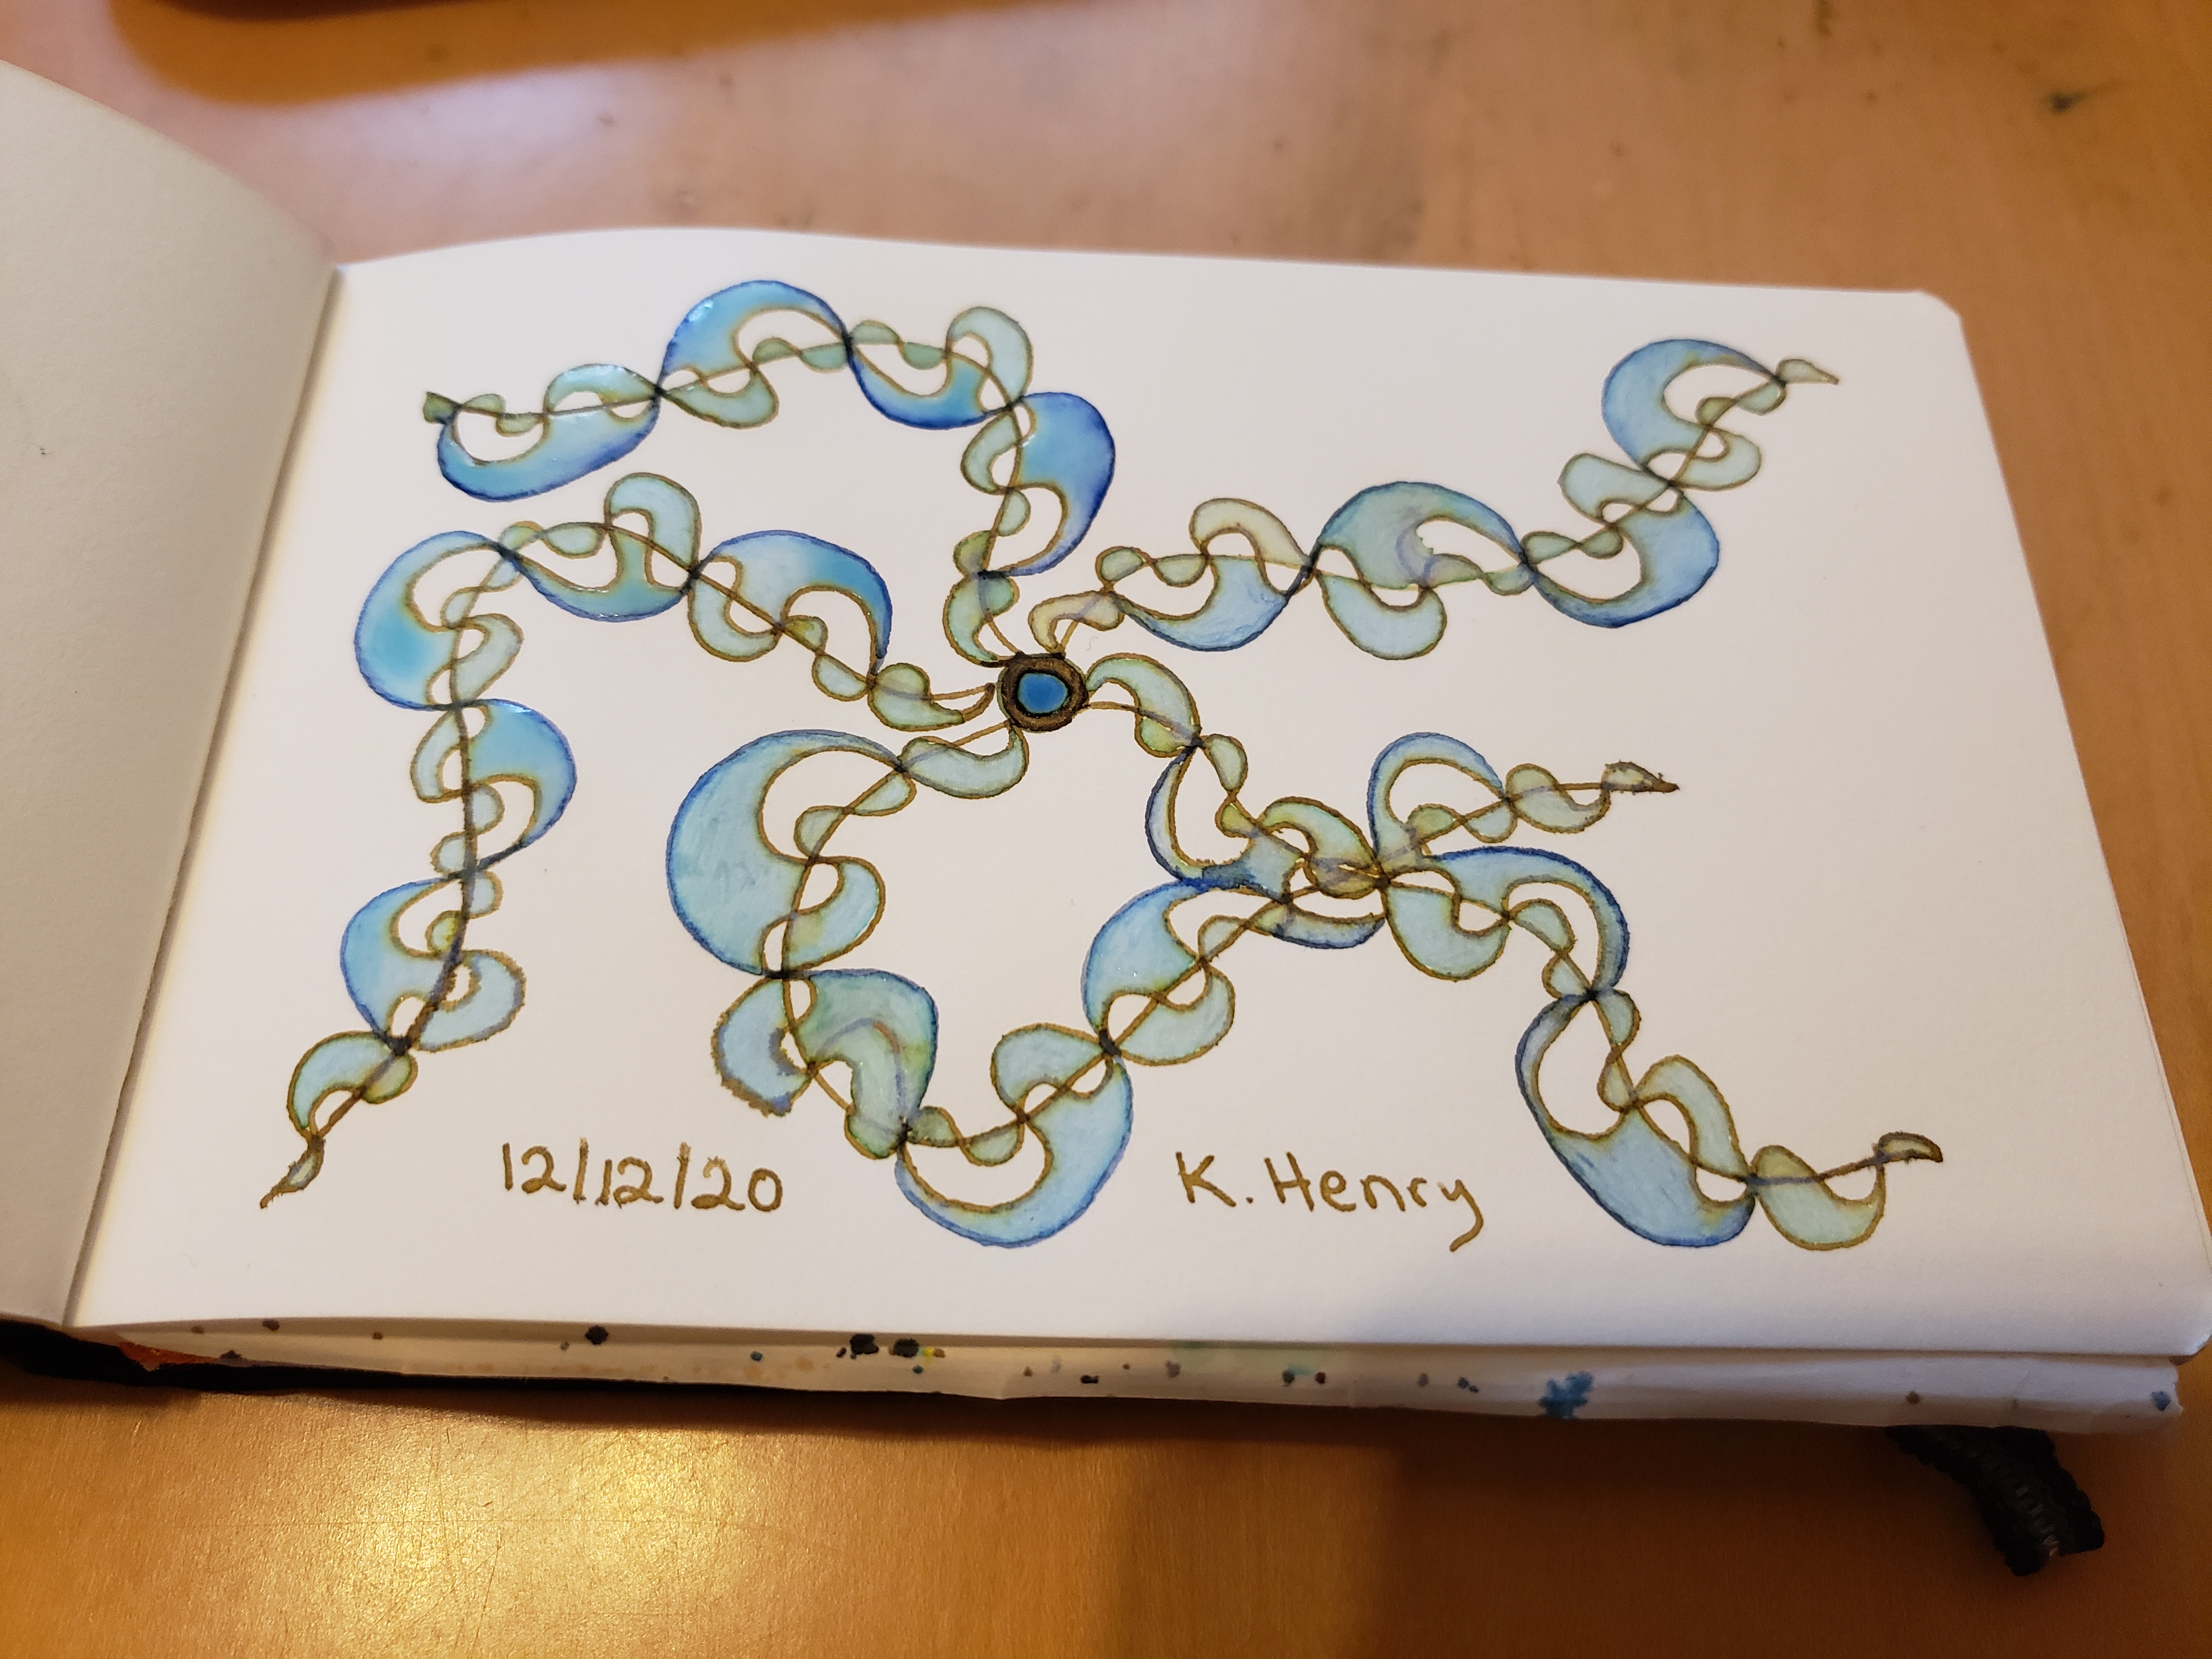 12/12/20 K. Henry